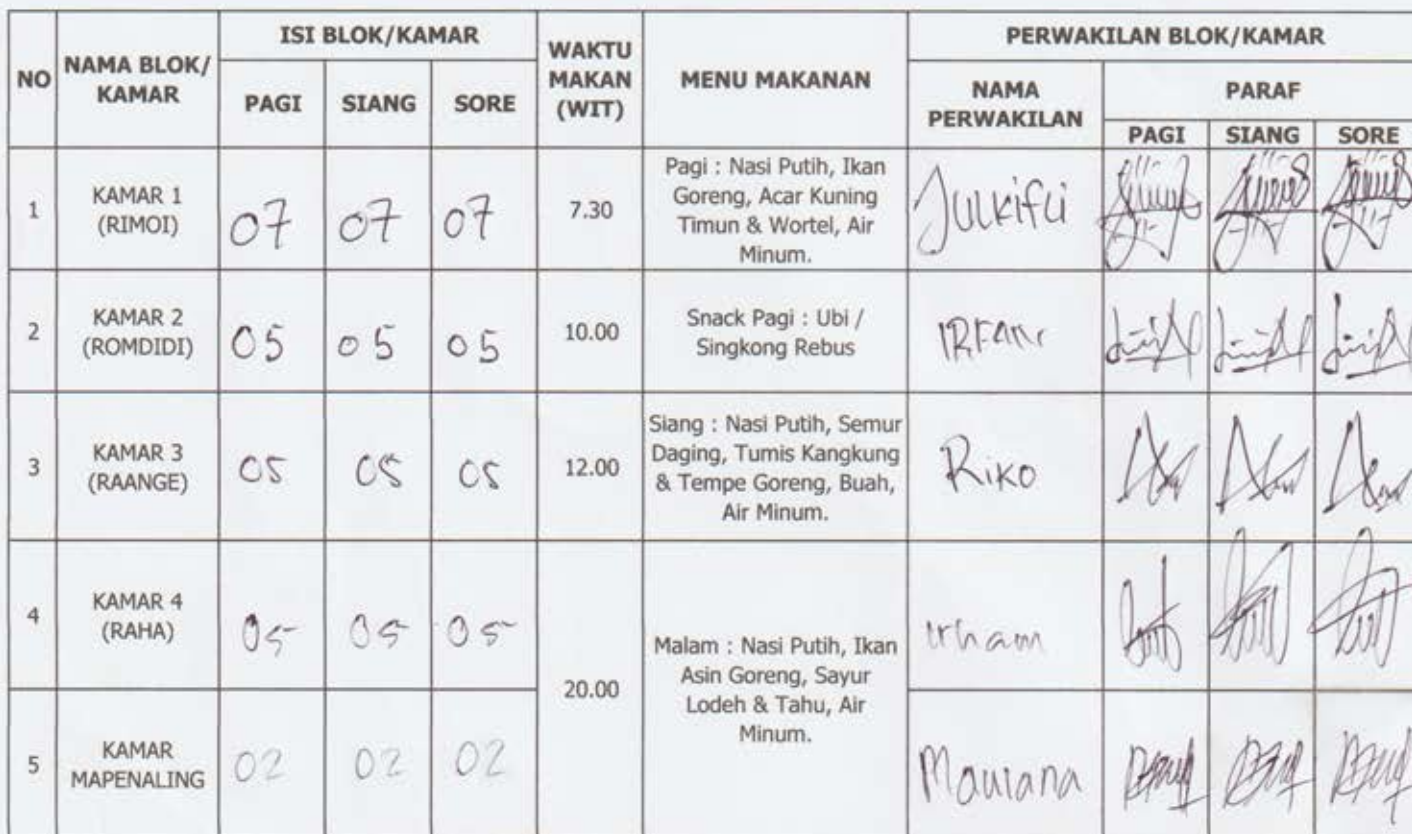 NO
NAMA BLOK/
KAMAR
ISI BLOK/KAMAR
PAGI SIANG SORE
WAKTU
MAKAN
(WIT)
MENU MAKANAN
PERWAKILAN BLOK/KAMAR
NAMA
PERWAKILAN
PARAF
PAGI SIANG SORE
1
KAMAR 1
(RIMOI)
07 07 07
7.30
Pagi : Nasi Putih, Ikan
Goreng, Acar Kuning
Timun & Wortel, Air
Minum.
Julkifli
2
KAMAR 2
(ROMDIDI)
05 05 05
10.00
Snack Pagi : Ubi /
Singkong Rebus
IRFAN
3
KAMAR 3
(RAANGE)
05 05 05
12.00
Siang : Nasi Putih, Semur
Daging, Tumis Kangkung
& Tempe Goreng, Buah,
Air Minum.
Riko
4
KAMAR 4
(RAHA)
05 05 05
20.00
Malam : Nasi Putih, Ikan
Asin Goreng, Sayur
Lodeh & Tahu, Air
Minum.
irham
5
KAMAR
MAPENALING
02 02 02
Maulana